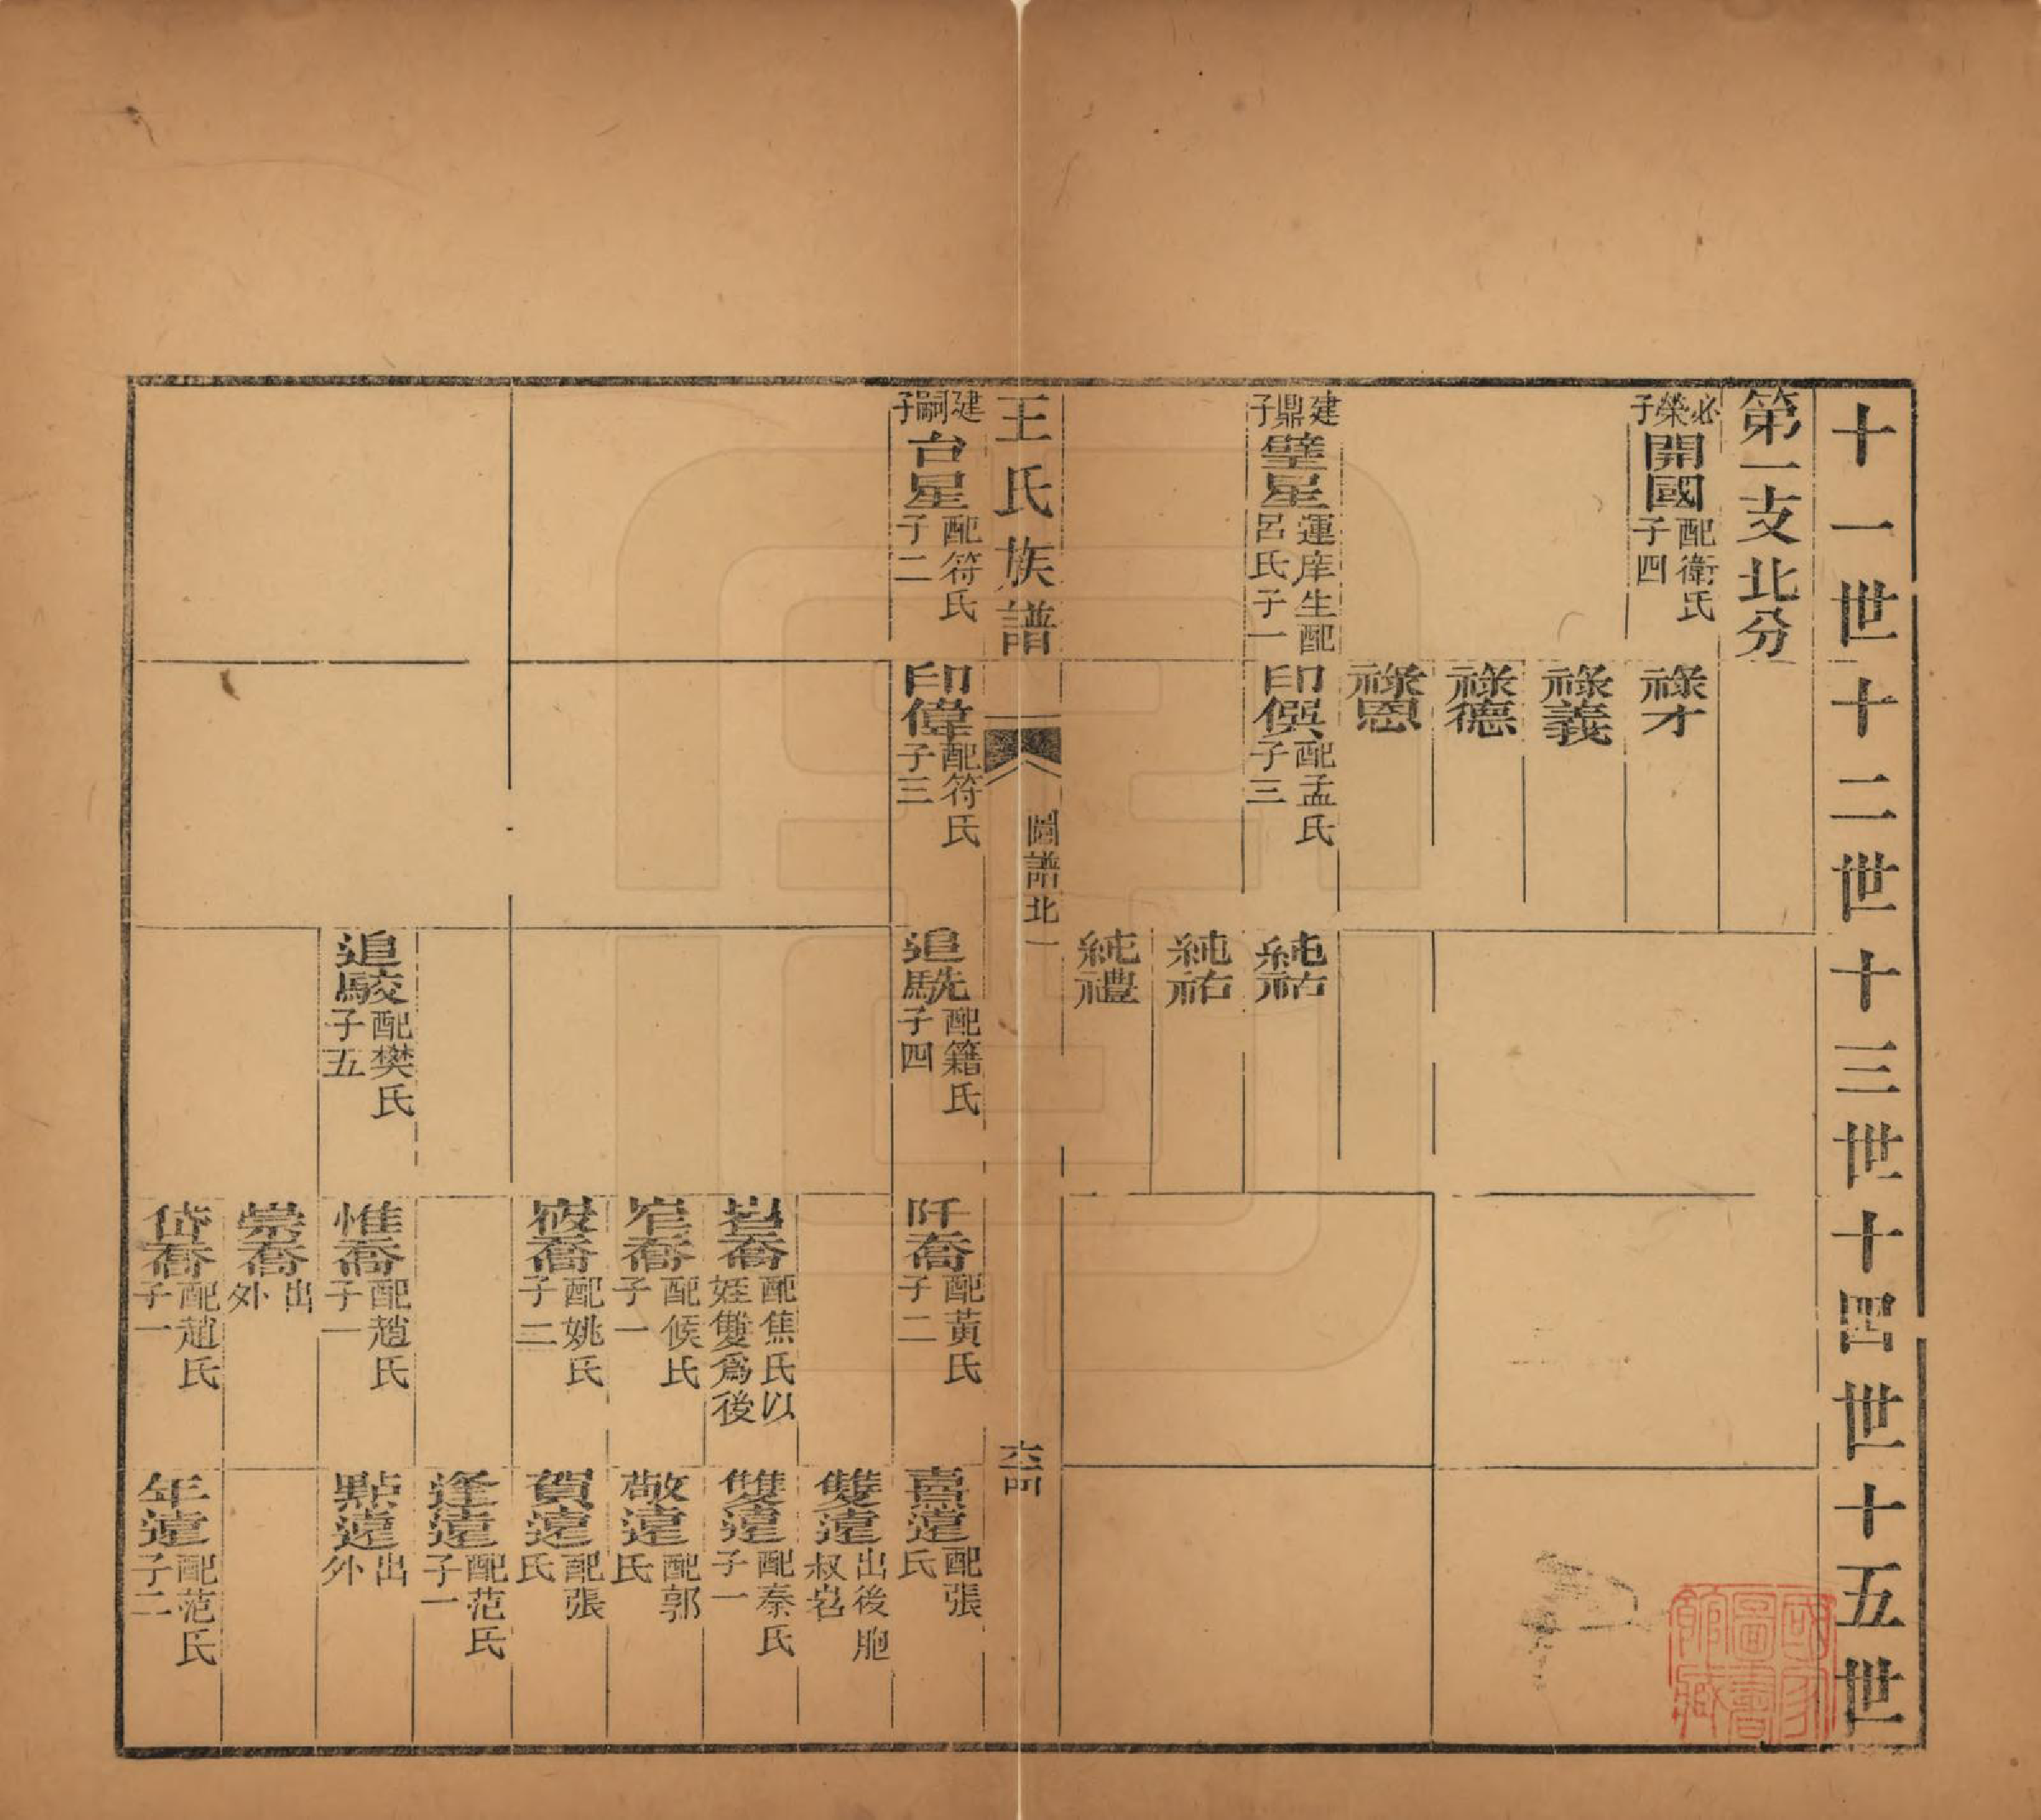 十一世十二世十三世十四世十五世
第一支北分
必榮子
開國
配衛氏
子四
祿才
祿義
祿德
祿恩
建鼎子
璧星
運庠生配
呂氏子一
印僎
配孟氏
子三
純祜
純祐
純禮
王氏族譜
圖譜北一
建嗣子
台星
配符氏
子二
印偉
配符氏
子三
追駪
配籍氏
子四
阡喬
配黃氏
子二
熹遠
配張
氏
雙遠
出後胞
叔岧
岧喬
配焦氏以
姪雙爲後
雙遠
配秦氏
子一
岝喬
配候氏
子一
敬遠
配郭
氏
峳喬
配姚氏
子二
賀遠
配張
氏
逢遠
配范氏
子一
追駮
配樊氏
子五
惟喬
配趙氏
子一
點遠
出
外
崇喬
出
外
岱喬
配趙氏
子一
年遠
配范氏
子二
國家圖書館藏